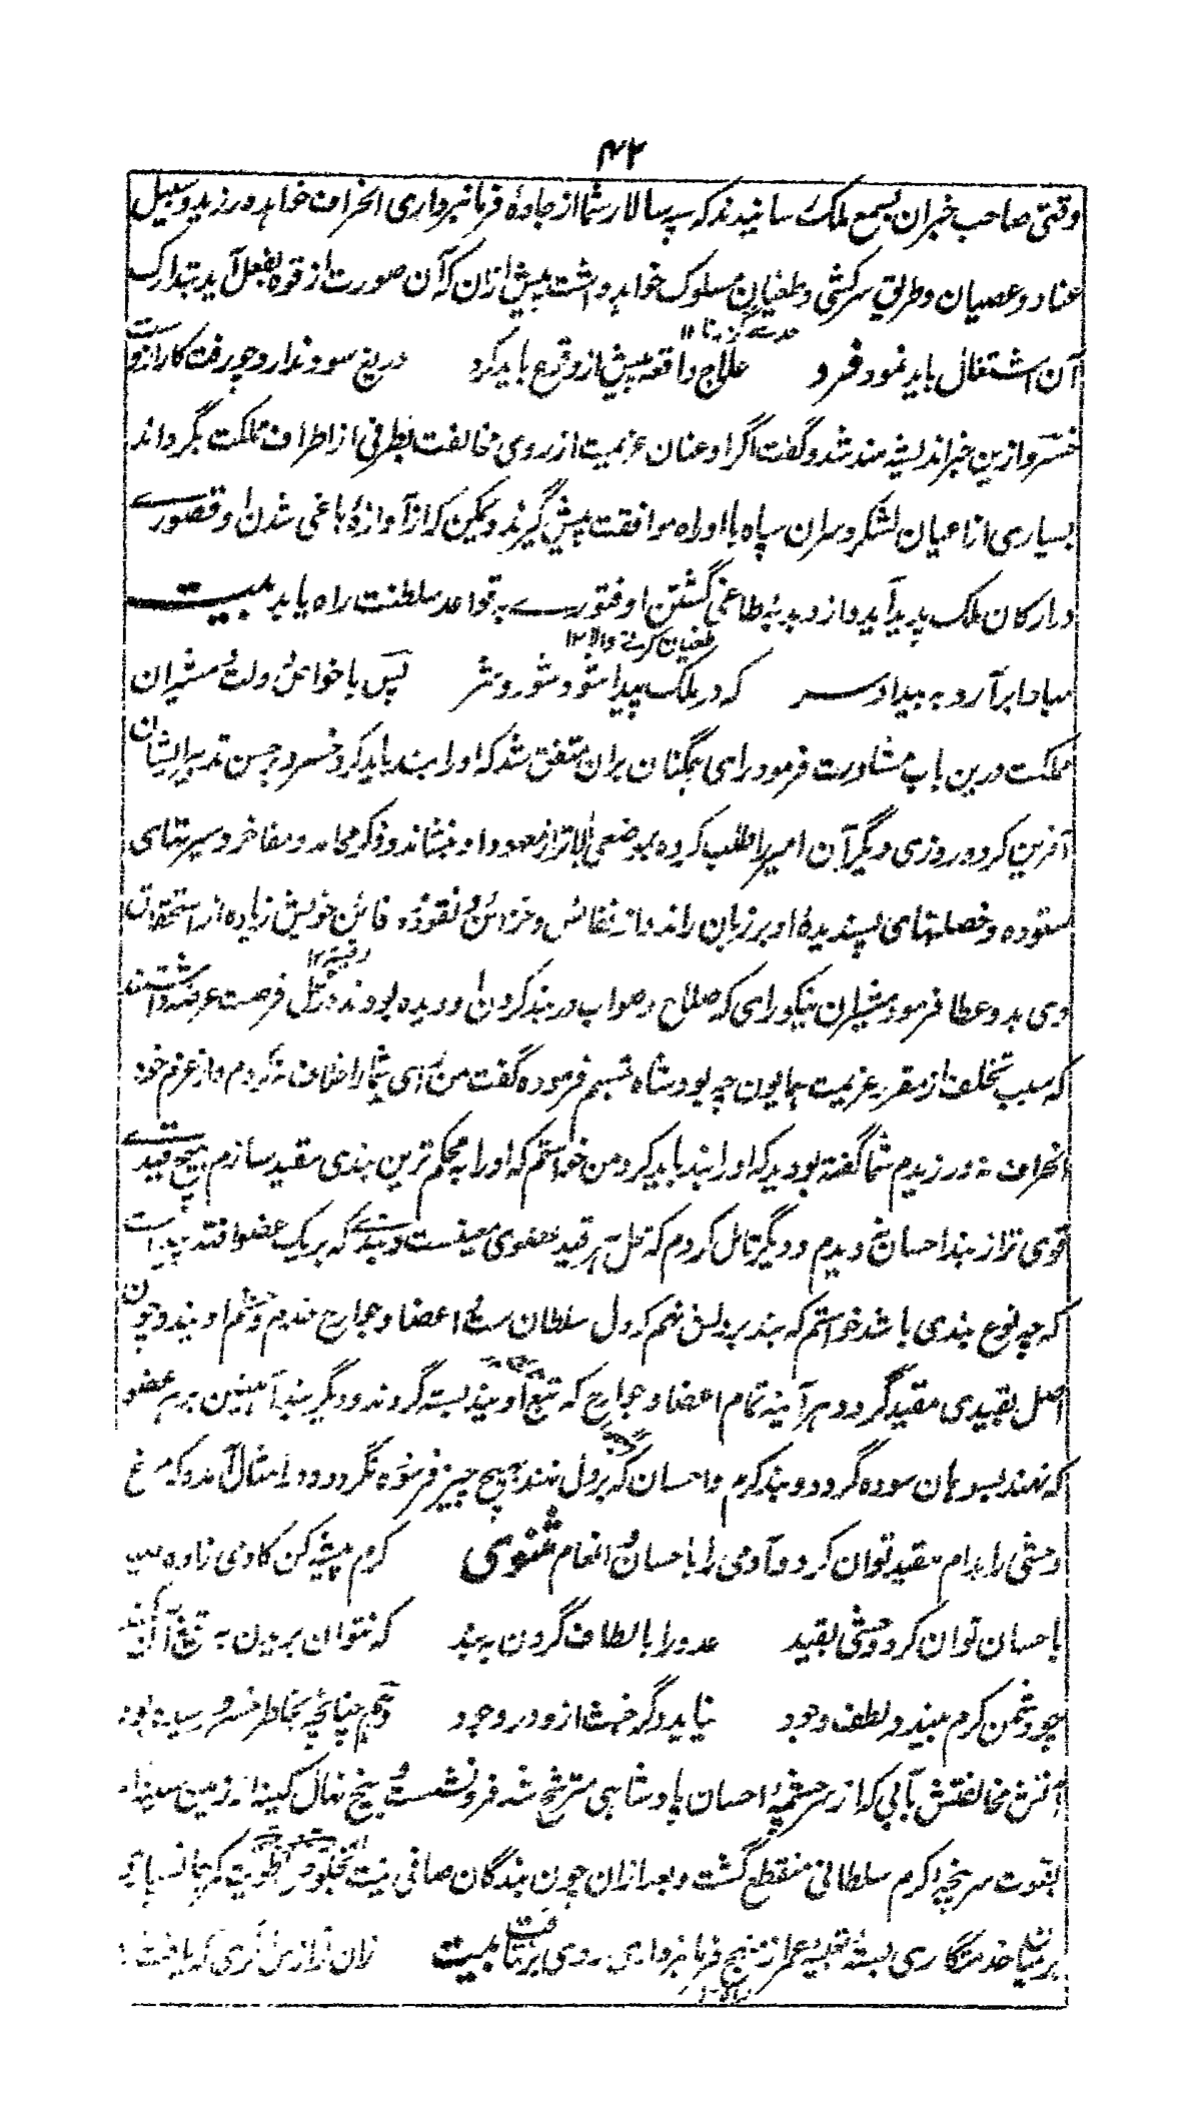 ۴۲
وقتی صاحب خبران بسمع ملک رسانیدند که سپه سالار شما از جادهٔ فرمانبرداری انحراف خواهد ورزید و سبیل
عناد و عصیان و طریق سرکشی و طغیان مسلوک خواهد داشت پیش ازان که آن صورت از قوه بفعل آید بتدارک
آن اشتغال باید نمود فرد علاج واقعه پیش از وقوع باید کرد دریغ سود ندارد چو رفت کار از دست
خسرو ازین خبر اندیشه مند شد و گفت اگر او عنان عزیمت از روی مخالفت بطرفی از اطراف مملکت بگرداند
بسیاری از اعیان لشکر و سران سپاه با او راه موافقت پیش گیرند و یمکن که از آوازهٔ باغی شدن او قصورے
در ارکان ملک پدید آید و از دبدبهٔ طاغی گشتن او فتورے بقواعد سلطنت راه یابد بیت
طغیان کرنے والا ۱۲
مبادا برآرد به بیداد سر که در ملک پیدا شود شور و شر پس با خواص دولت و مشیران
مملکت درین باب مشاورت فرمود رای همگنان بران متفق شد که او را بند باید کرد خسرو بر حسن تدبیر ایشان
آفرین کرد و روزی دیگر آن امیر را طلب کرده بموضعی بالاتر از معهود او بنشاند و ذکر محامد و مفاخر و سیرتهای
ستوده و خصلتهای پسندیدهٔ او بر زبان راند و از نفائس و خزائن و نقود دفائن خویش زیاده از استحقاق
وی بدو عطا فرمود مشیران نیکو رای که صلاح و صواب در بند کردن او دیده بودند در محل فرصت عرضه داشتند
که سبب تخلف از مقرر عزیمت همایون چه بود شاه تبسم فرموده گفت من رای شما را خلاف نه کردم و از عزم خود
انحراف نه ورزیدم شما گفته بودید که او را بند باید کرد من خواستم که او را به محکم ترین بندی مقید سازم هیچ قیدے
قوی تر از بند احسان ندیدم و دیگر تامل کردم که محل هر قید عضوی معین ست و بندے که بر یک عضو افتد پیداست
که چه نوع بندی باشد خواستم که بند بر دلش نهم که دل سلطان ست و اعضا و جوارح خدم و حشم او یند و چون
اصل بقیدی مقید گردد هر آینه تمام اعضا و جوارح که تبع او یند بسته گردند و دیگر بند آهنین بر هر عضو
که نهند بسوهان سوده گردد و بند کرم و احسان که بر دل نهند بهیچ چیز فرسوده نگردد و در امثال آمده که مرغ
وحشی را بدام مقید توان کرد و آدمی را باحسان و انعام مثنوی کرم پیشه کن کادمی زاده صید
باحسان توان کرد و وحشی بقید عدو را بالطاف گردن به بند که نتوان بریدن به تیغ آن کمند
چو دشمن کرم بیند و لطف و جود نیاید دگر خبث ازو در وجود و هم چنانچه بخاطر خسرو رسیده بود
آتش مخالفتش بآبی که از سرچشمهٔ احسان پادشاهی مترشح شد فرو نشست و بیخ نهال کینه از زمین سینه‌اش
بقوت سرپنجهٔ کرم سلطانی منقطع گشت و بعد ازان چون بندگان صافی نیت
بر میان خدمتگاری بسته بقیهٔ عمر از نهج فرمانبرداری روی بر نتافت بیت